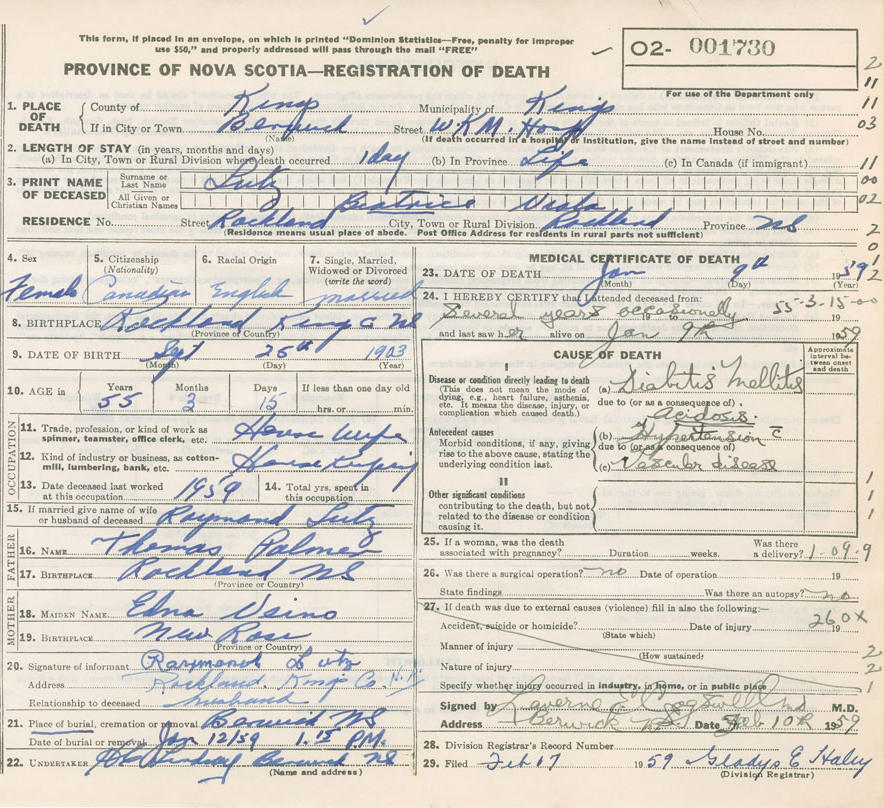 This form, if placed in an envelope, on which is printed "Dominion Statistics—Free, penalty for improper
use $50," and properly addressed will pass through the mail "FREE"
PROVINCE OF NOVA SCOTIA—REGISTRATION OF DEATH
O2- 001730
For use of the Department only
1. PLACE OF DEATH
County of Kings Municipality of Kings
If in City or Town Berwick Street W.K.M. Hosp House No.
(Name) (If death occurred in a hospital or institution, give the name instead of street and number)
2. LENGTH OF STAY (in years, months and days)
(a) In City, Town or Rural Division where death occurred 1 day (b) In Province Life (c) In Canada (if immigrant)
3. PRINT NAME OF DECEASED
Surname or Last Name Lutz
All Given or Christian Names Beatrice
RESIDENCE No. Street Rockland City, Town or Rural Division Rockland Province NS
(Residence means usual place of abode. Post Office Address for residents in rural parts not sufficient)
4. Sex
Female
5. Citizenship
(Nationality)
Canadian
6. Racial Origin
English
7. Single, Married,
Widowed or Divorced
(write the word)
married
8. BIRTHPLACE Rockland Kings Co NS
(Province or Country)
9. DATE OF BIRTH Sept 25th 1903
(Month) (Day) (Year)
10. AGE in
Years Months Days If less than one day old
55 3 15 hrs. or min.
OCCUPATION
11. Trade, profession, or kind of work as
spinner, teamster, office clerk, etc. House Wife
12. Kind of industry or business, as cotton-
mill, lumbering, bank, etc. House Keeping
13. Date deceased last worked
at this occupation 1959
14. Total yrs. spent in
this occupation
15. If married give name of wife
or husband of deceased Raymond Lutz
FATHER
16. NAME Thomas Palmer
17. BIRTHPLACE Rockland NS
(Province or Country)
MOTHER
18. MAIDEN NAME Edna Veino
19. BIRTHPLACE New Ross
(Province or Country)
20. Signature of informant Raymond Lutz
Address Rockland. Kings Co. N.S.
Relationship to deceased husband
21. Place of burial, cremation or removal Berwick NS
Date of burial or removal Jan 12/59 1.15 P.M.
22. UNDERTAKER Berwick NS
(Name and address)
MEDICAL CERTIFICATE OF DEATH
23. DATE OF DEATH Jan 9th 1959
(Month) (Day)
24. I HEREBY CERTIFY that I attended deceased from:
Several years occasionally 55-3-15-00
and last saw her alive on Jan 9th 1959
CAUSE OF DEATH
Approximate
interval be-
tween onset
and death
I
Disease or condition directly leading to death
(This does not mean the mode of
dying, e.g., heart failure, asthenia,
etc. It means the disease, injury, or
complication which caused death.)
(a) Diabitis Mellitis
due to (or as a consequence of)
Acidosis.
Antecedent causes
Morbid conditions, if any, giving
rise to the above cause, stating the
underlying condition last.
(b) Hypertension c̄
due to (or as a consequence of)
(c) Vascular disease
II
Other significant conditions
contributing to the death, but not
related to the disease or condition
causing it.
25. If a woman, was the death
associated with pregnancy? Duration weeks. Was there
a delivery? 1-09.9
26. Was there a surgical operation? no Date of operation 19
State findings Was there an autopsy? no
27. If death was due to external causes (violence) fill in also the following:—
Accident, suicide or homicide? Date of injury 19
(State which)
260X
Manner of injury
(How sustained)
Nature of injury
Specify whether injury occurred in industry, in home, or in public place
Signed by Laverne Cogswell md M.D.
Address Berwick NS Date Feb 10th 1959
28. Division Registrar's Record Number
29. Filed Feb 17 1959 Gladys E Haley
(Division Registrar)
2
11
11
03
11
00
02
2
0
1
2
1
1
1
2
2
1